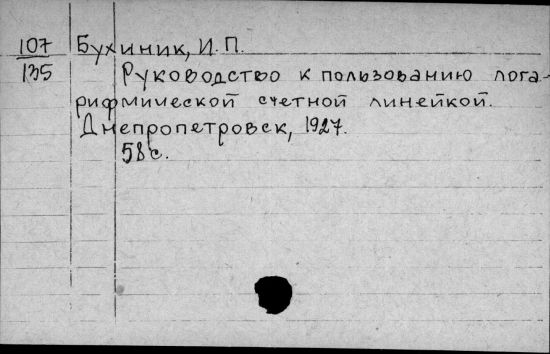 107 Бухиник, И. П.
135 Руководство к пользованию лога-
рифмической счетной линейкой.
Днепропетровск, 1927.
58с.